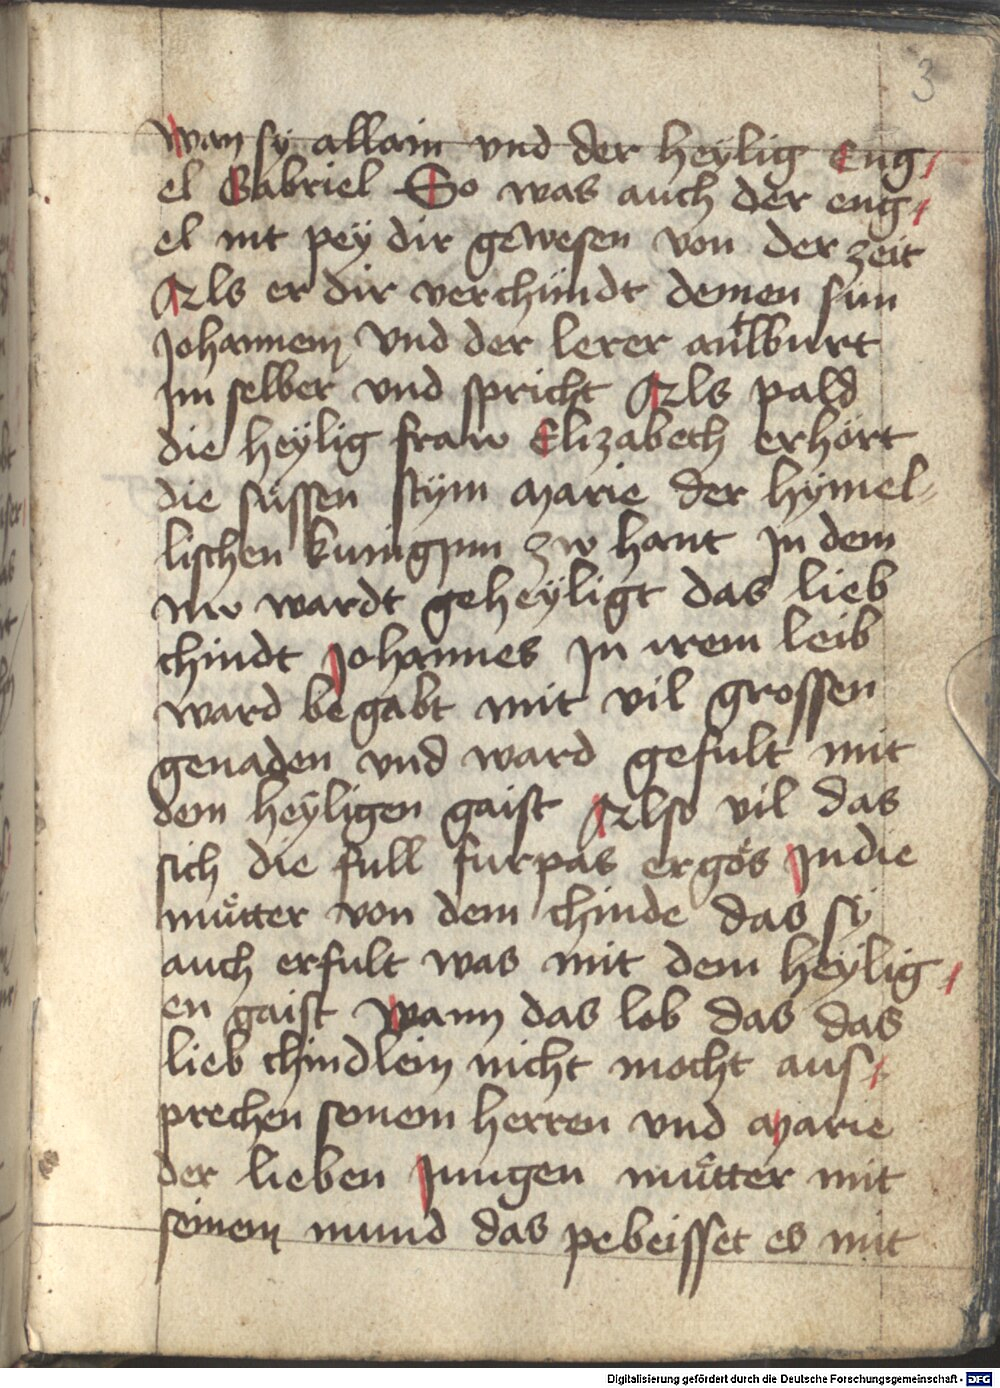 3
wan sy allain vnd der heylig Eng⸗
el Gabriel So was auch der eng⸗
el nit pey dir gewesen von der zeit
Als er dir verchündt deinen sun
Johannem vnd der lerer
im selber vnd spricht Als pald
die heylig fraw Elizabeth erhört
die süssen stym Marie der hymel⸗
lischen kunigynn zw hant Jn dem
nw wardt geheyligt das lieb
chindt Johannes Jn irem leib
ward begabt mit vil grossen
genaden vnd ward gefult mit
dem heyligen gaist Also vil das
sich die full furpas ergös Jn die
můtter von dem chinde das sy
auch erfult was mit dem heylig⸗
en gaist wann das lob das das
lieb chindlein nicht mocht aus⸗
prechen seinem herren vnd Marie
der lieben Jungen můtter mit
seinem mund das pebeisset es mit
Digitalisierung gefördert durch die Deutsche Forschungsgemeinschaft - DFG